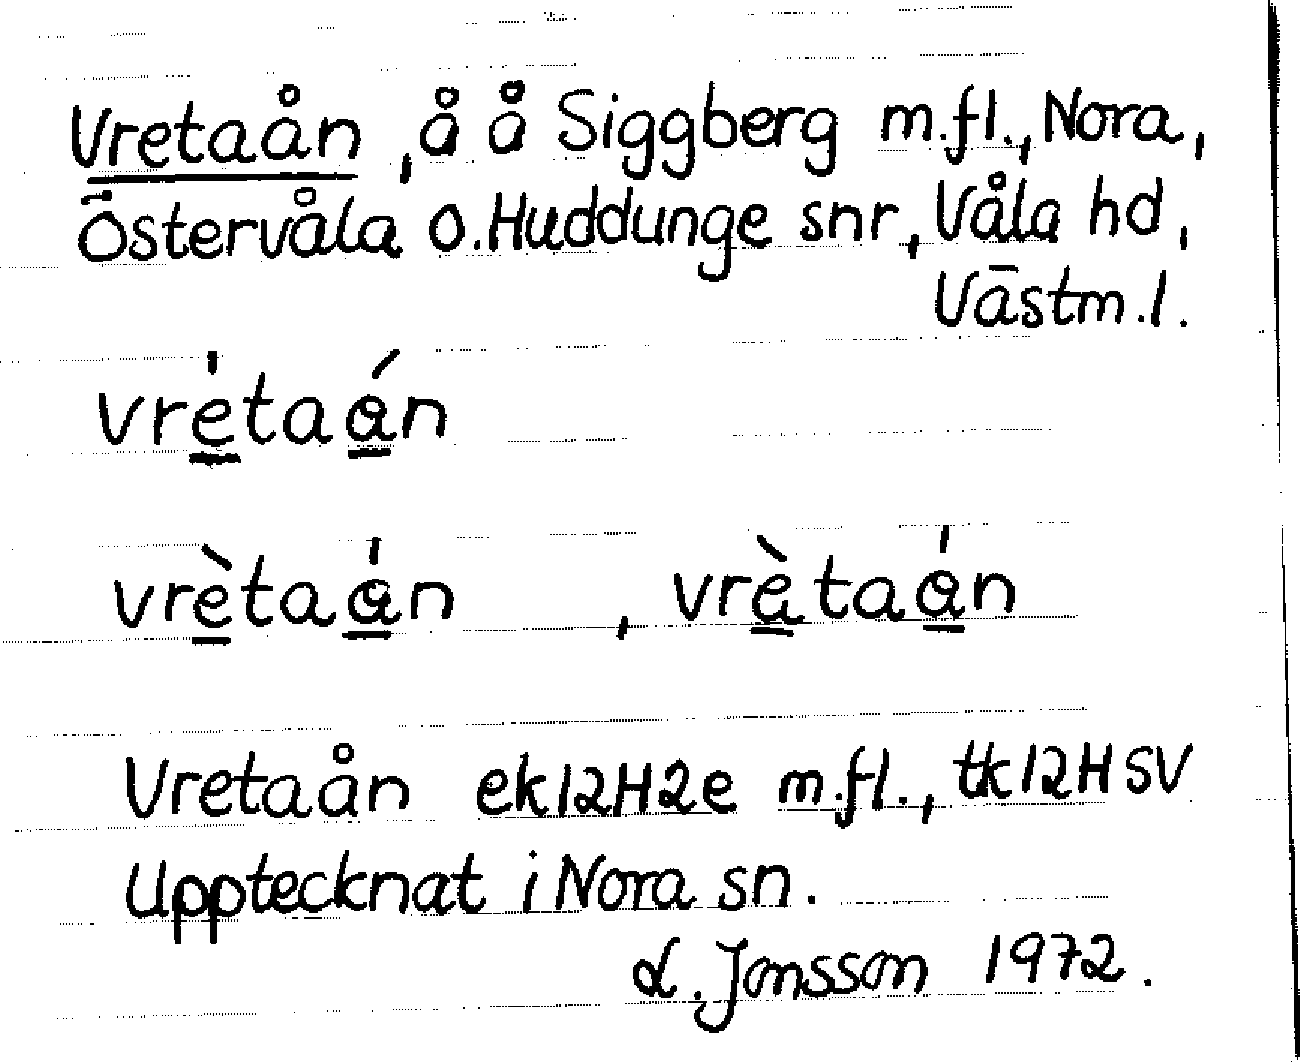 Vretaån, å å Siggberg m.fl., Nora,
Östervåla o. Huddunge snr, Våla hd,
Västm.l.
vre̲̍taá̲n
vrè̲taa̲̍n, vrè̲taa̲̍n
Vretaån ek12H2e m.fl., tk12HSV
Upptecknat i Nora sn.
L. Jonsson 1972.